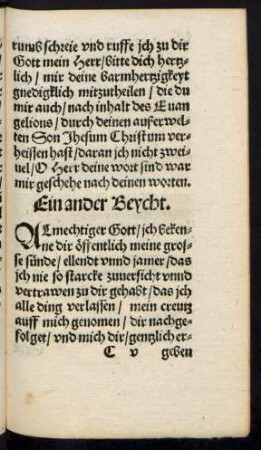 rumb schreie vnd ruffe jch zu dir
Gott mein Herr/bitte dich hertz-
lich/ mir deine barmhertzigkeyt
gnedigklich mitzutheilen/ die du
mir auch/nach inhalt des Euan
gelions/durch deinen außerwel-
ten Son Jhesum Christum ver-
heissen hast/daran jch nicht zwei-
uel/O Herr deine wort sind war
mir geschehe nach deinen worten.
Ein ander Beycht.
ALmechtiger Gott/jch beken-
ne dir öffentlich meine gros-
se sünde/ellendt vnnd jamer/das
jch nie so starcke zuuersicht vnnd
vertrawen zu dir gehabt/das jch
alle ding verlassen/ mein creutz
auff mich genomen/ dir nachge-
folget/vnd mich dir/gentzlich er-
C v geben